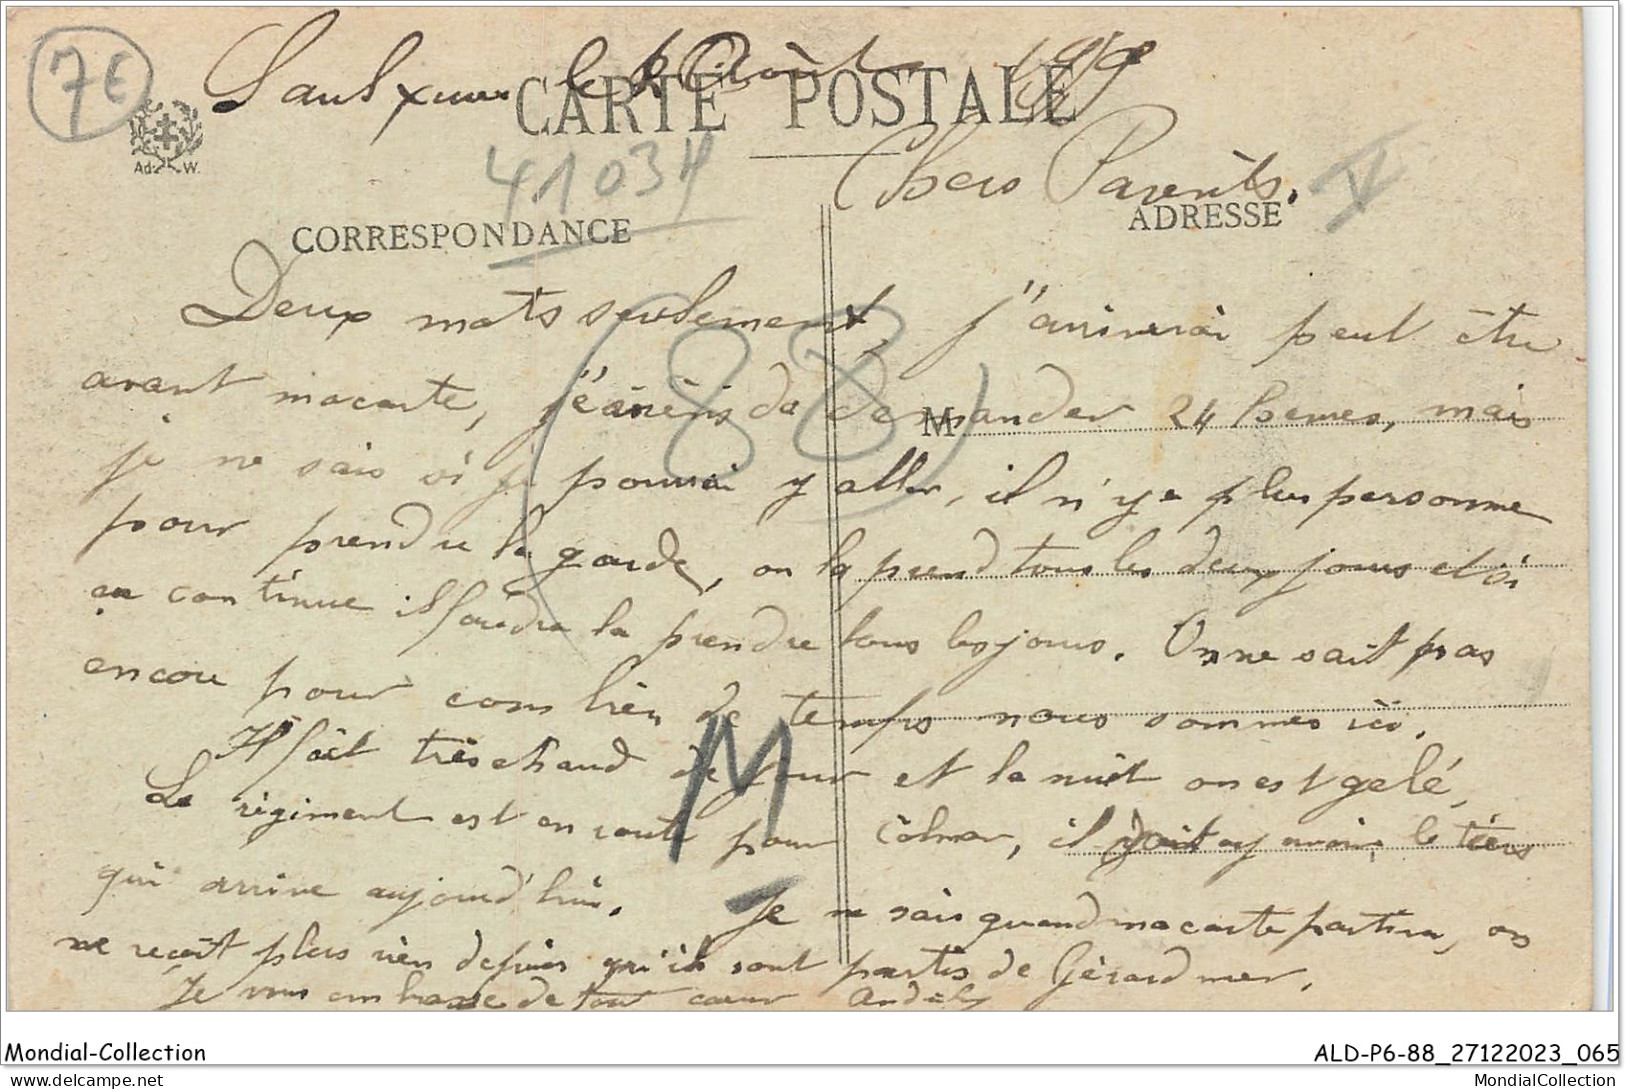 7€
Saulxures le 2 Août 1919
CARTE POSTALE
Ad. W.
41034
Chers Parents.
V
CORRESPONDANCE
ADRESSE
(88)
Deux mots seulement, j'arriverai peut être
avant ma carte, je viens de demander 24 heures, mais
M
je ne sais si je pourrai y aller, il n'y a plus personne
pour prendre la garde, on la prend tous les deux jours et si
ça continue il faudra la prendre tous les jours. On ne sait pas
encore pour combien de temps nous sommes ici.
Il fait très chaud de jour et la nuit on est gelé,
M
Le régiment est en route pour Colmar, il doit y avoir le tiers
qui arrive aujourd'hui. Je ne sais quand ma carte partira, on
ne reçoit plus rien depuis qu'ils sont partis de Gérardmer.
Je vous embrasse de tout cœur
Mondial-Collection
ALD-P6-88_27122023_065
mondial-collection.delcampe.net
MondialCollection